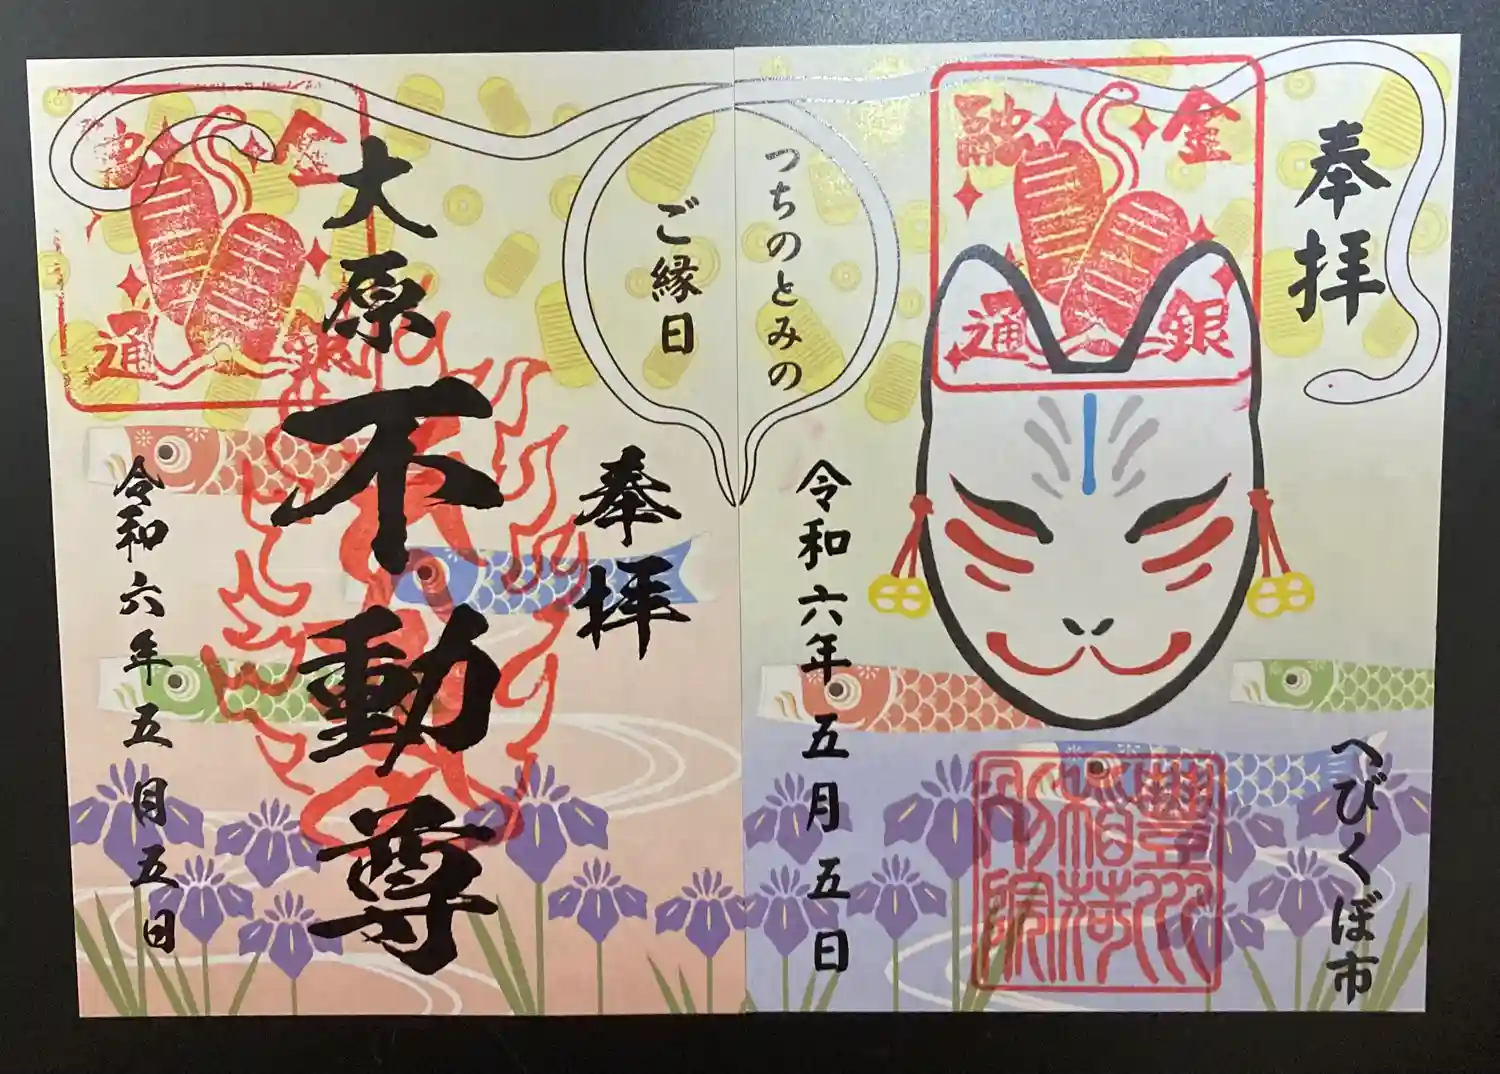 奉拝
へびくぼ市
金銀
融通
令和六年五月五日
つちのとみの
ご縁日
奉拝
大原不動尊
金銀
融通
令和六年五月五日